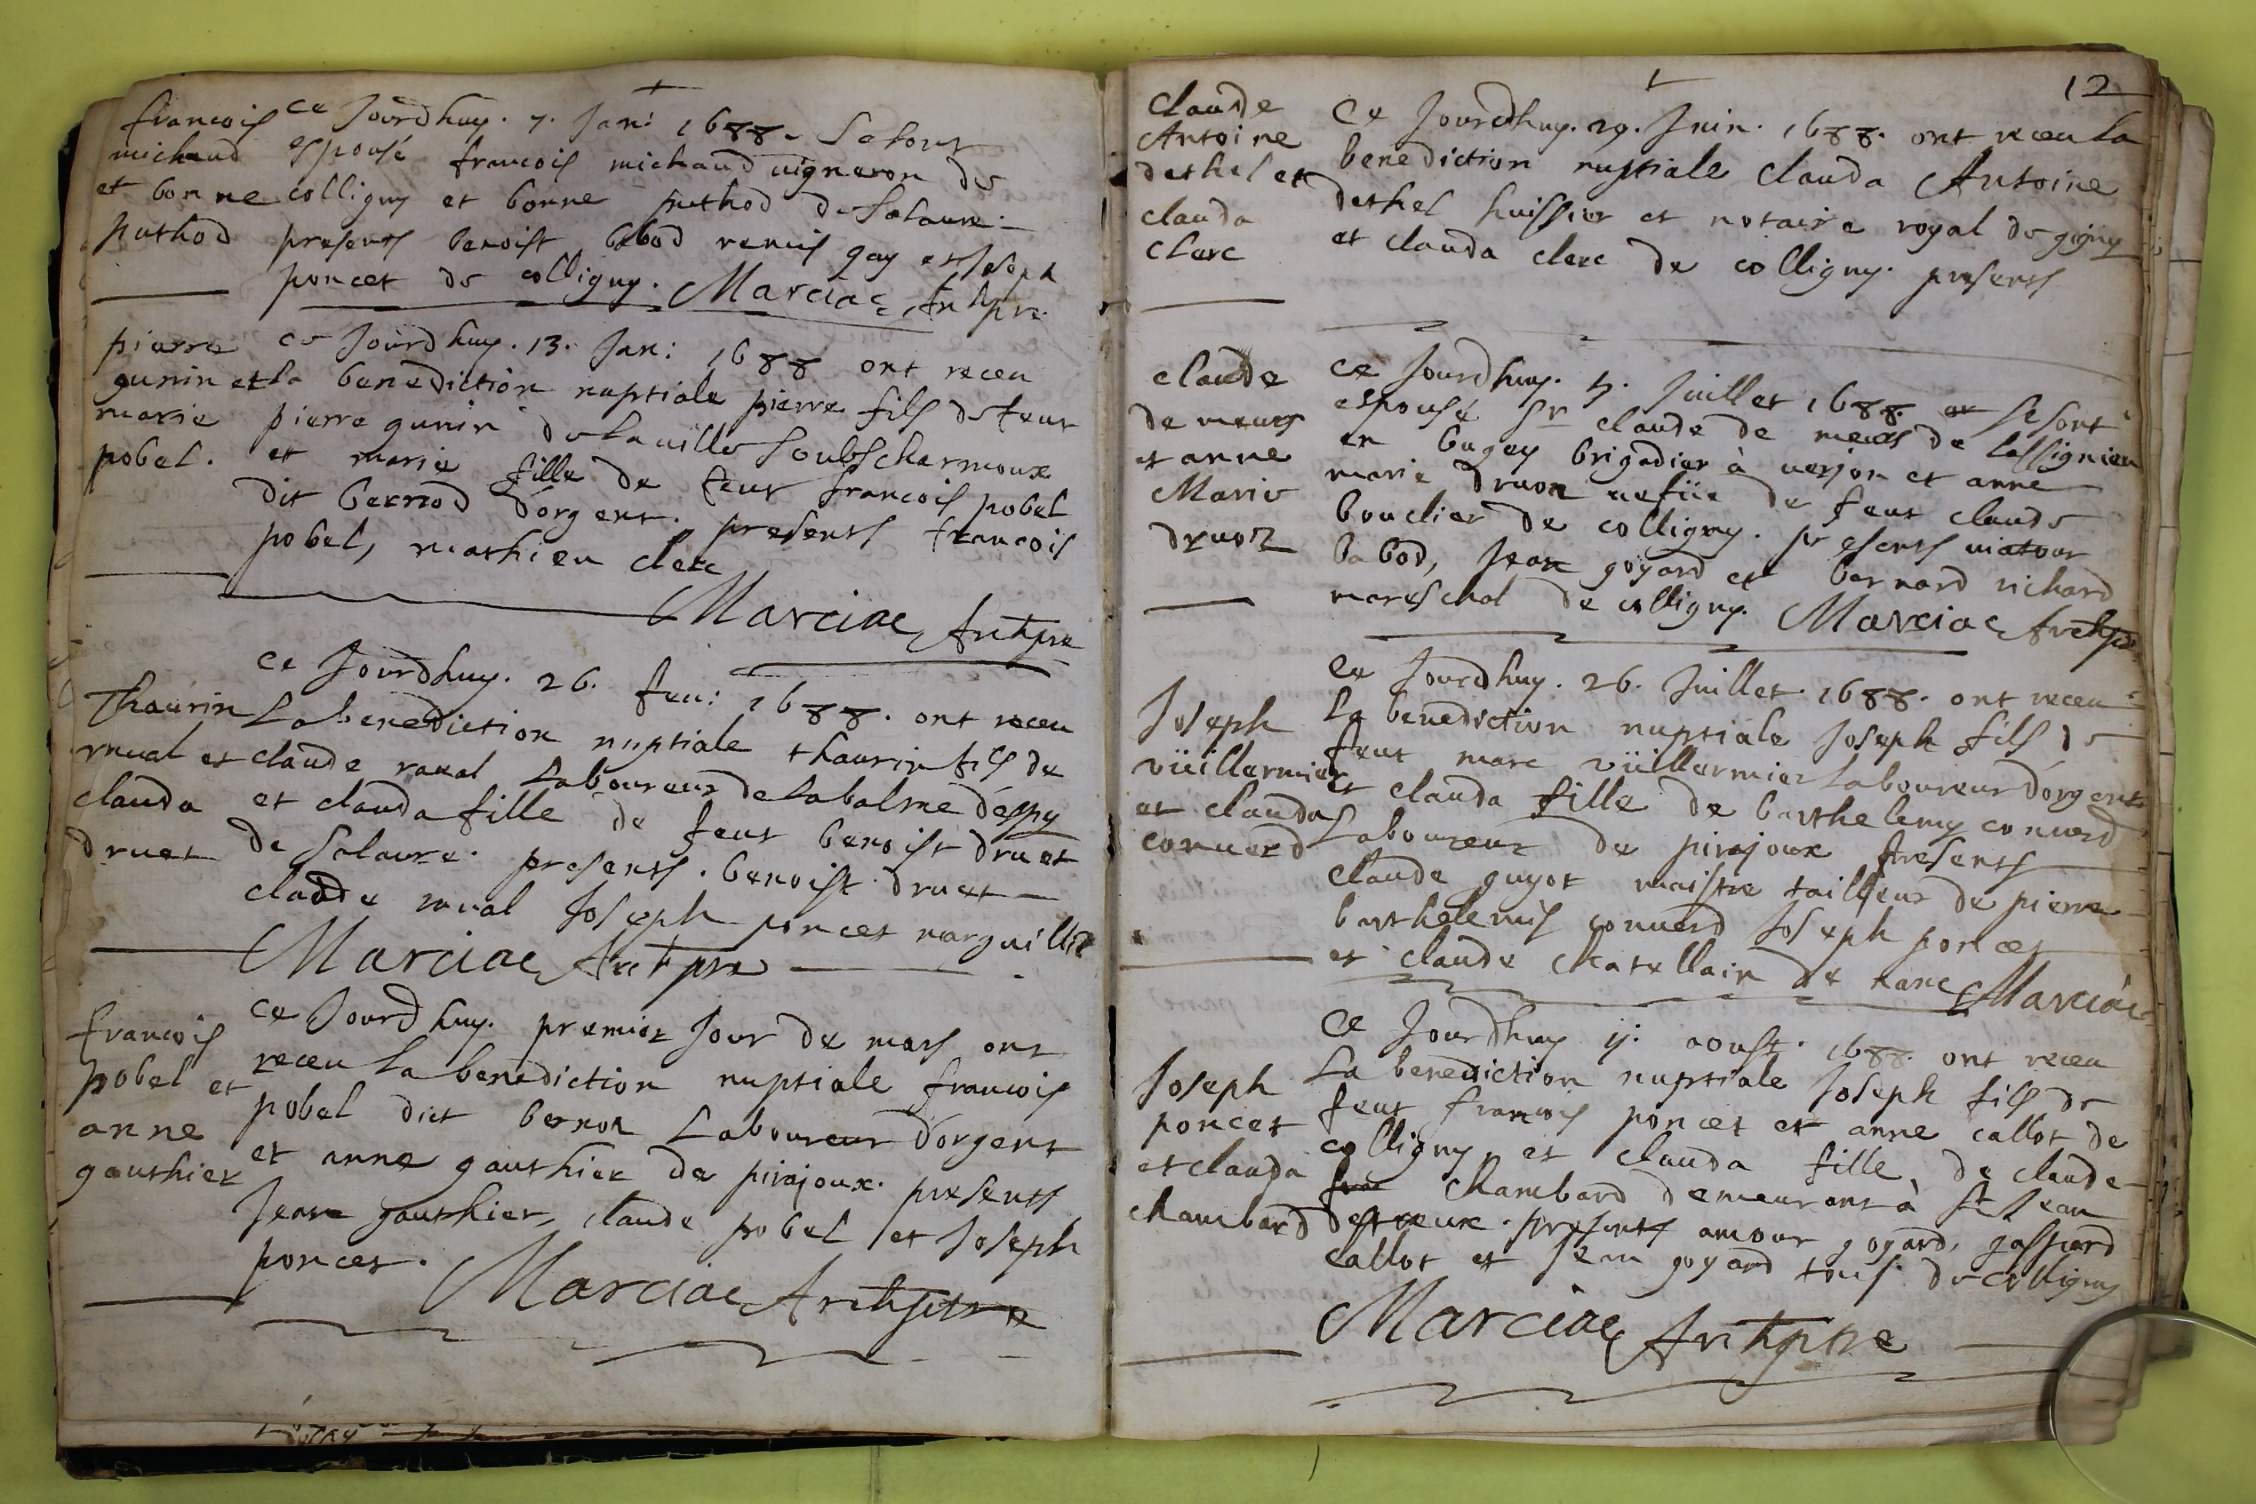 françois
michaud
et bonne
puthod
ce Jourdhuy. 7. Jan: 1688. se sont
espousé françois michaud vigneron de
colligny et bonne puthod de salaure.
presents benoist babod remis gay et Joseph
poncet de colligny. Marciac Archpre
pierre
gunin et
marie
pobel.
ce Jourdhuy. 13. Jan: 1688 ont receu
la benediction nuptiale pierre fils de feut
pierre gunin de laville soubs charmoux
et marie fille de feut françois pobel
dit bernod d'orgent. presents françois
pobel, mathieu clerc
Marciac Archpre
Thaurin
rnual et
clauda
druet
ce Jourdhuy. 26. feu: 1688. ont receu
La benediction nuptiale thaurin fils de
claude raual Laboureur de Labalme d'espy
et clauda fille de feut benoist druet
de salaure. presents. benoist druet
claude raual Joseph poncet marguillier
Marciac Archpre
françois
pobel et
anne
gauthier
ce Jourdhuy. premier Jour de mars ont
receu La benediction nuptiale françois
pobel dict bernon Laboureur d'orgent
et anne gauthier de pirajoux. presents
Jean gauthier, claude pobel et Joseph
poncet.
Marciac Archpbtre
12
claude
Antoine
dethel et
clauda
clerc
Ce Jourdhuy. 29. Juin. 1688. ont receu la
benediction nuptiale clauda Antoine
dethel huissier et notaire royal de gigny
et clauda clerc de colligny. presents
claude
de meurs
et anne
Marie
druon
ce Jourdhuy. 5. Juillet 1688. se sont
espousé Sr claude de meurs de Lassignieu
en bugey brigadier à verjon et anne
marie druon uefue de feut claude
bouclier de colligny. presents viatour
babod, Jean goyard et bernard richard
mareschal de colligny. Marciac Archp
Joseph
vüillermier
et clauda
conuerd
ce Jourdhuy. 26. Juillet. 1688. ont receu
La benediction nuptiale Joseph fils de
feut marc vüillermier Laboureur d'orgent
et clauda fille de barthelemy conuerd
Laboureur de pirajoux presents
claude guyot maistre tailleur de pierre
barthelemis conuerd Joseph poncet
et claude chatellain de nanc Marciac
Joseph
poncet
et clauda
chambard
Ce Jourdhuy 11. aoust. 1688. ont receu
La benediction nuptiale Joseph fils de
feut françois poncet et anne callot de
colligny et clauda fille de claude
chambard demeurant à St Jean
destreux. presents amour goyard, gaspard
callot et Jean goyard tous de colligny
Marciac Archpbre